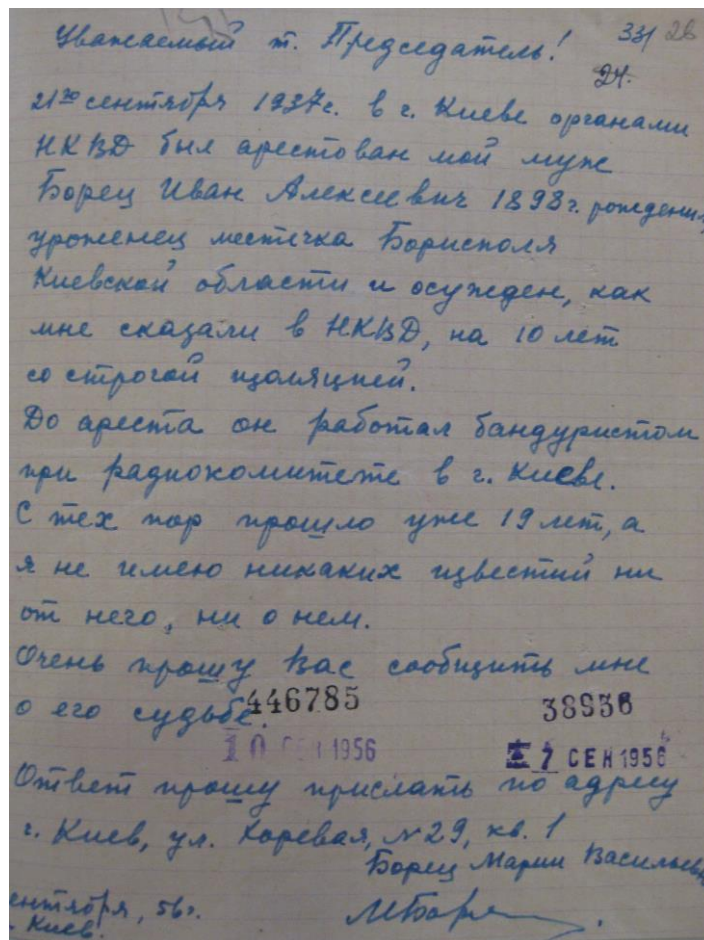 33 26
Уважаемый т. Председатель!
24.
21го сентября 1937г. в г. Киеве органами
НКВД был арестован мой муж
Борец Иван Алексеевич 1898г. рождения,
уроженец местечка Борисполя
Киевской области и осужден, как
мне сказали в НКВД, на 10 лет
со строгой изоляцией.
До ареста он работал бандуристом
при радиокомитете в г. Киеве.
С тех пор прошло уже 19 лет, а
я не имею никаких известий ни
от него, ни о нем.
Очень прошу Вас сообщить мне
о его судьбе.
446785 38936
10 СЕН 1956 7 СЕН 1956
Ответ прошу прислать по адресу
г. Киев, ул. Хоревая, № 29, кв. 1
Борец Марии Васильевн
ентября, 56г.
Киев.